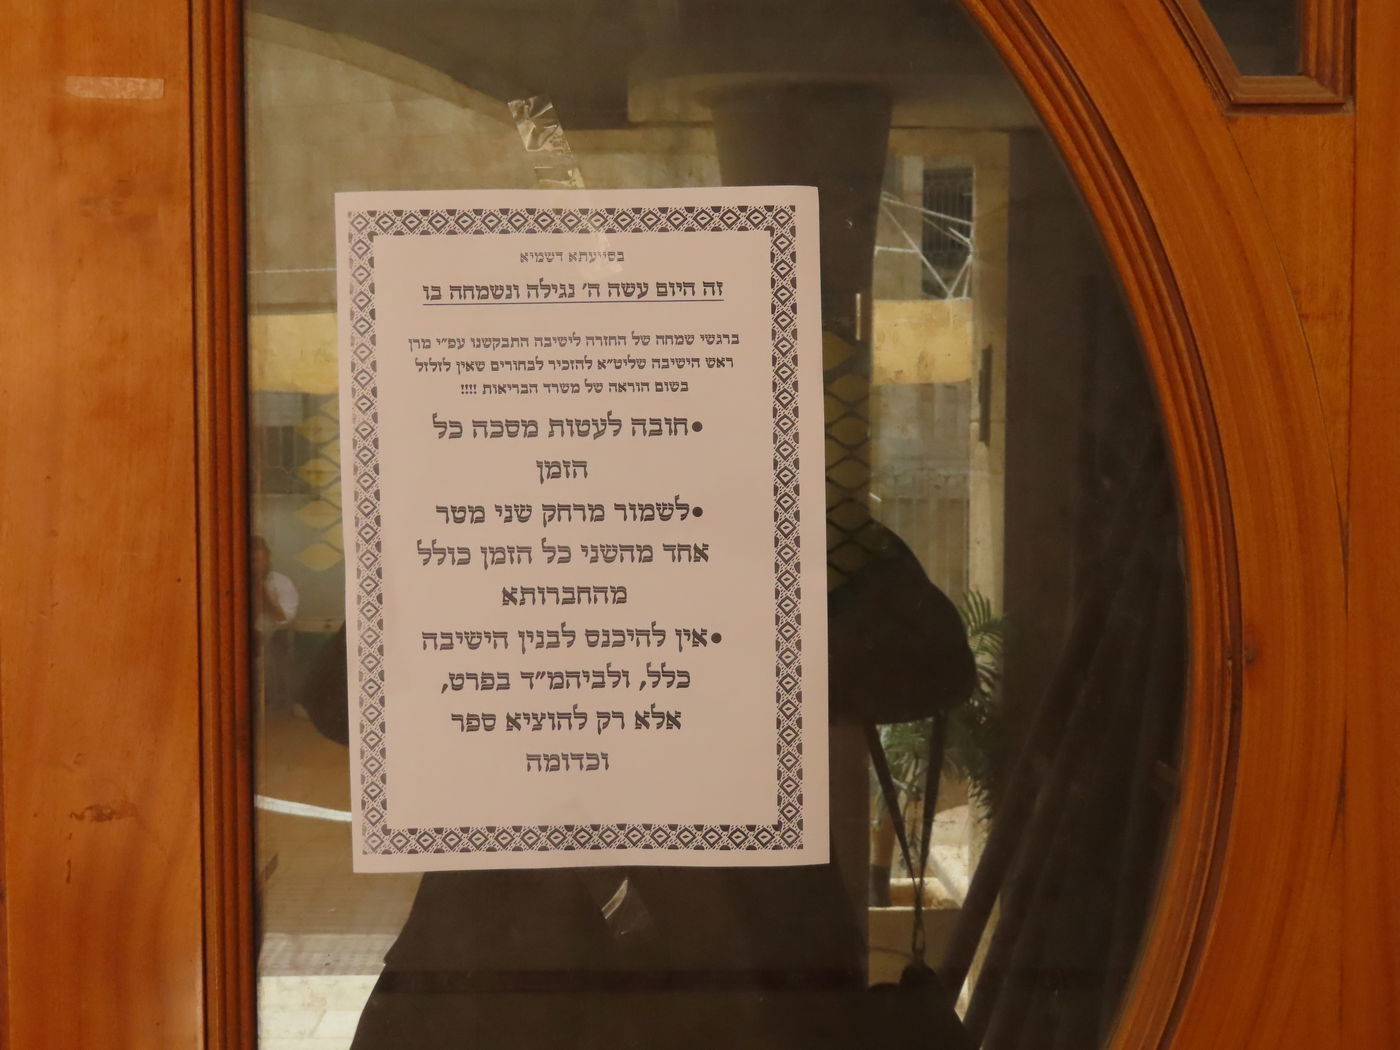 בסייעתא דשמיא
זה היום עשה ה׳ נגילה ונשמחה בו
ברגשי שמחה של החזרה לישיבה התבקשנו עפ״י מרן
ראש הישיבה שליט״א להזכיר לבחורים שאין לזלזל
בשום הוראה של משרד הבריאות !!!!
•חובה לעטות מסכה כל
הזמן
•לשמור מרחק שני מטר
אחד מהשני כל הזמן כולל
מהחברותא
•אין להיכנס לבנין הישיבה
כלל, ולביהמ״ד בפרט,
אלא רק להוציא ספר
וכדומה